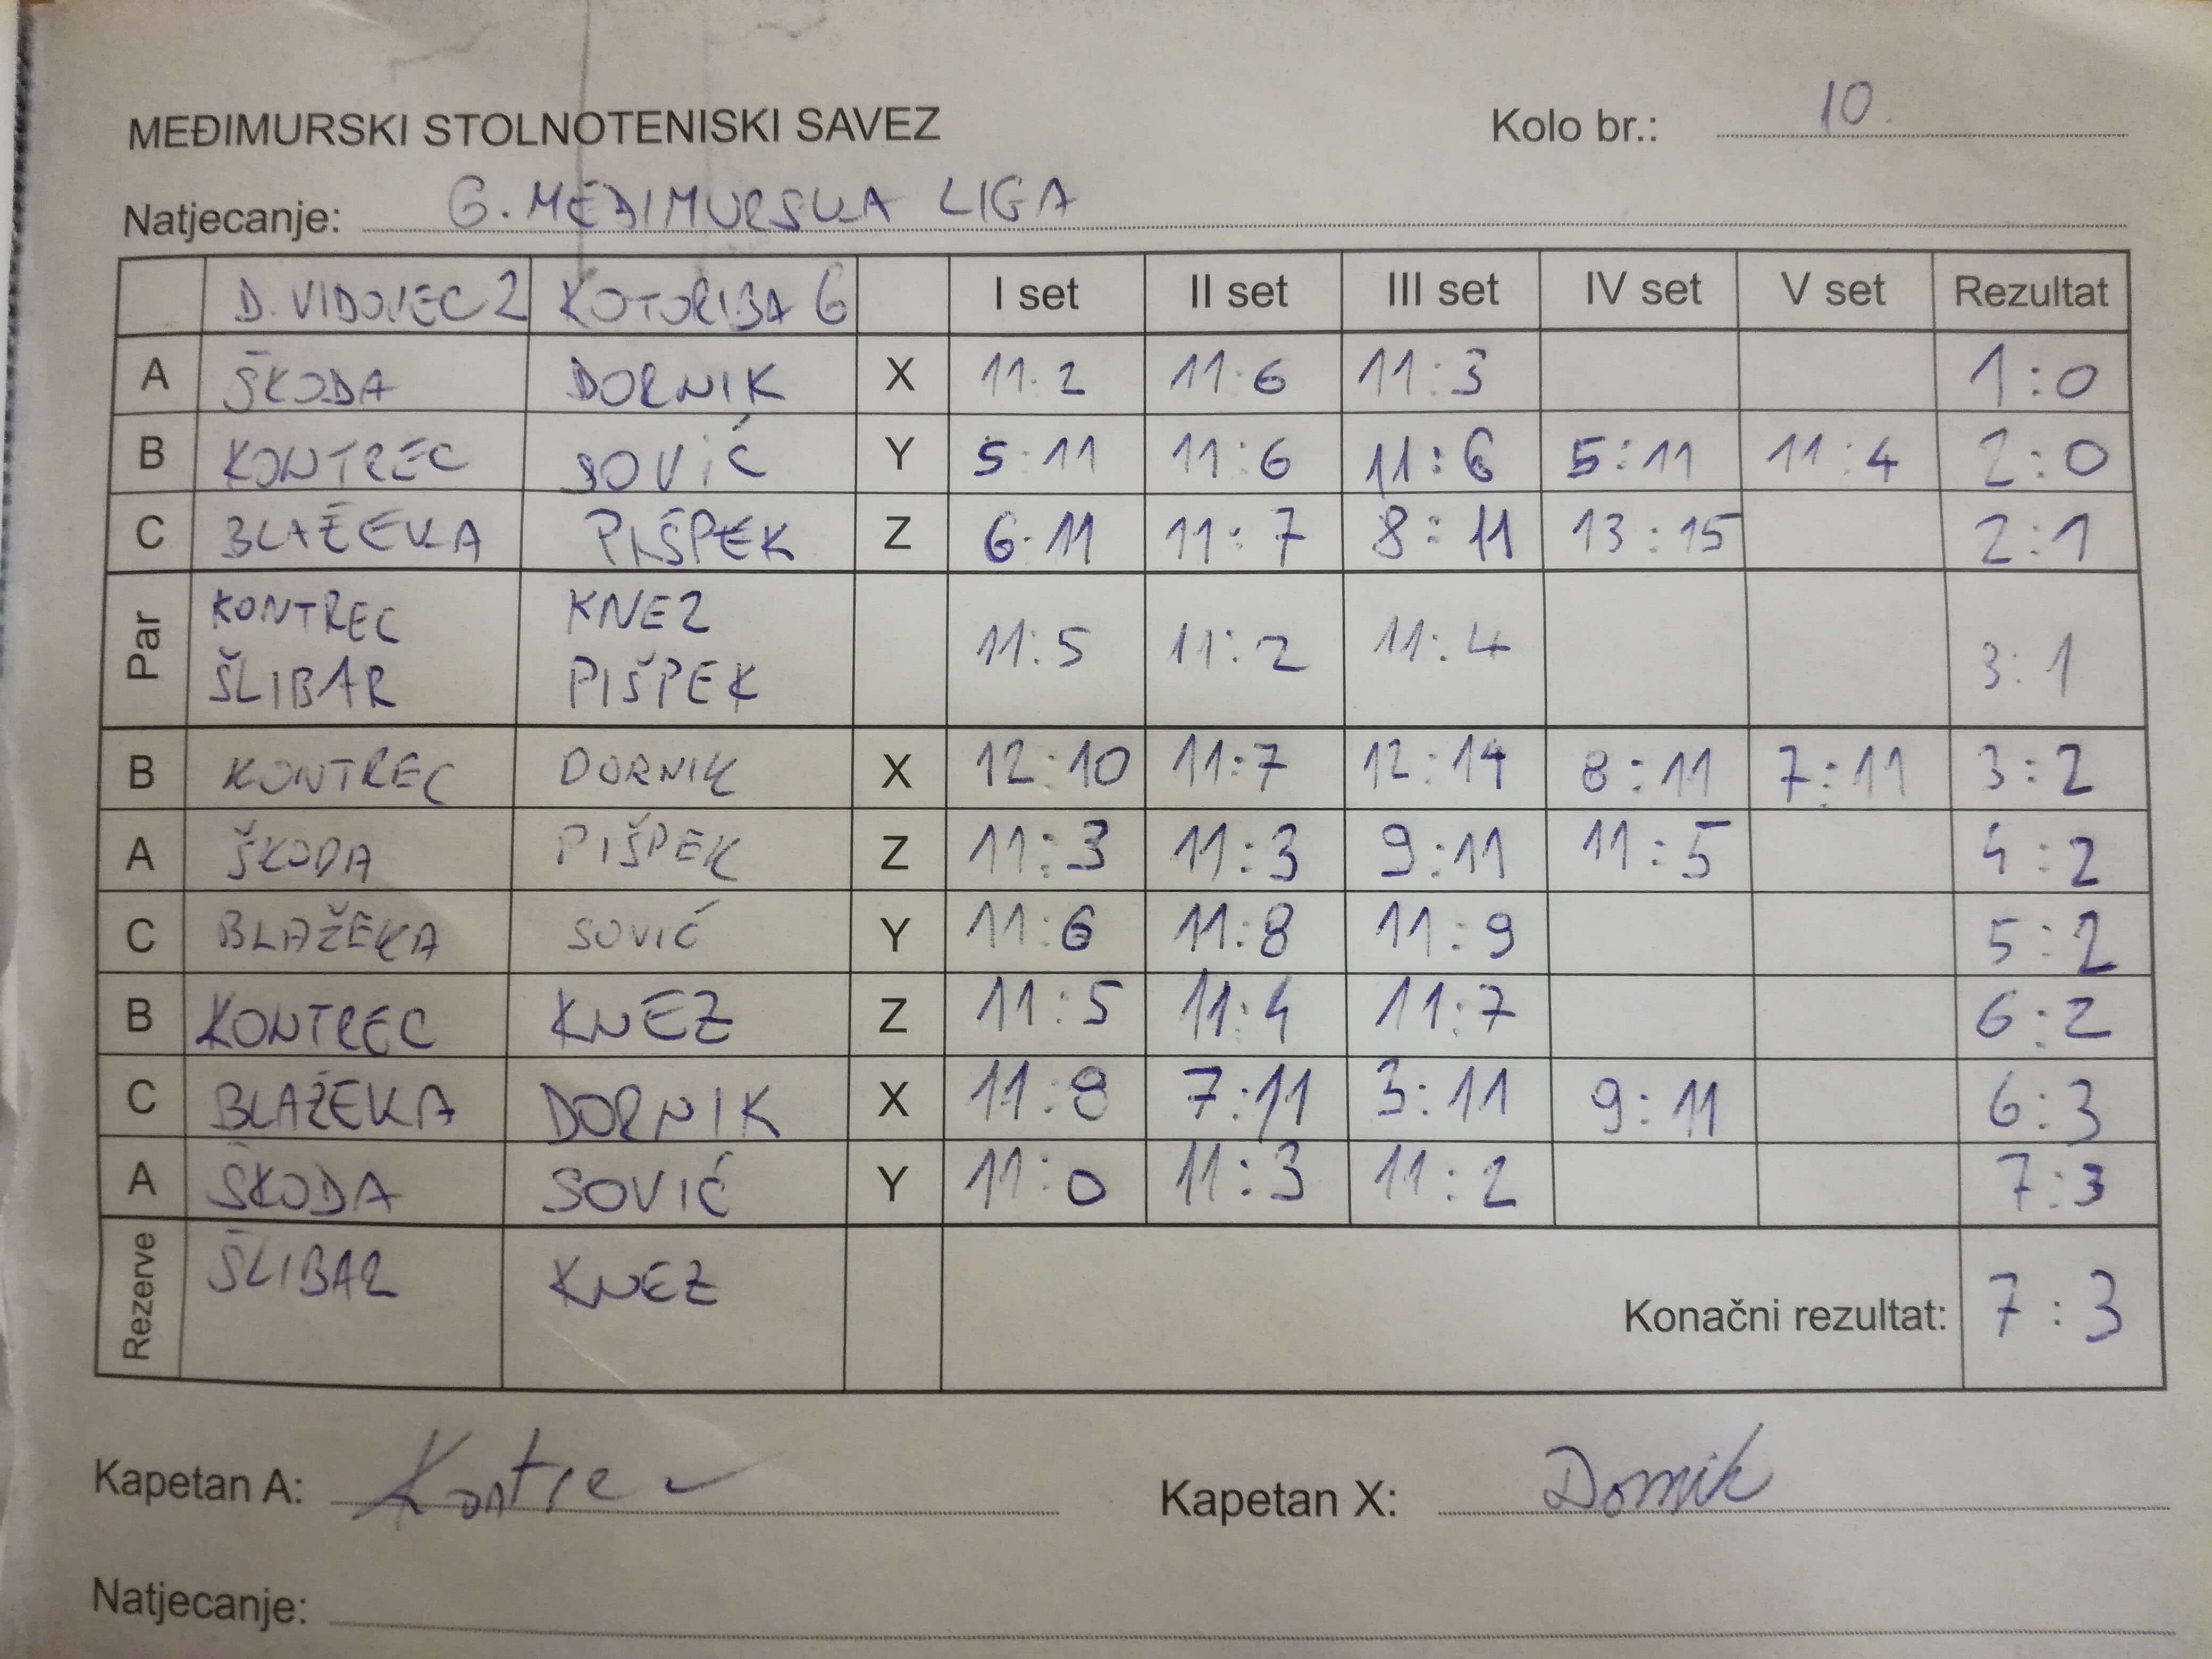 MEĐIMURSKI STOLNOTENISKI SAVEZ Kolo br.: 10.
Natjecanje: G. MEĐIMURSKA LIGA
D. VIDOVEC 2 KOTORIBA 6 I set II set III set IV set V set Rezultat
A ŠKODA DORNIK X 11:2 11:6 11:3 1:0
B KONTREC SOVIĆ Y 5:11 11:6 11:6 5:11 11:4 2:0
C BLAŽEKA PIŠPEK Z 6:11 11:7 8:11 13:15 2:1
Par KONTREC KNEZ 11:5 11:2 11:4 3:1
ŠLIBAR PIŠPEK
B KONTREC DORNIK X 12:10 11:7 12:14 8:11 7:11 3:2
A ŠKODA PIŠPEK Z 11:3 11:3 9:11 11:5 4:2
C BLAŽEKA SOVIĆ Y 11:6 11:8 11:9 5:2
B KONTREC KNEZ Z 11:5 11:4 11:7 6:2
C BLAŽEKA DORNIK X 11:8 7:11 3:11 9:11 6:3
A ŠKODA SOVIĆ Y 11:0 11:3 11:2 7:3
Rezerve ŠLIBAR KNEZ
Konačni rezultat: 7:3
Kapetan A: Kontrec Kapetan X: Dornik
Natjecanje: